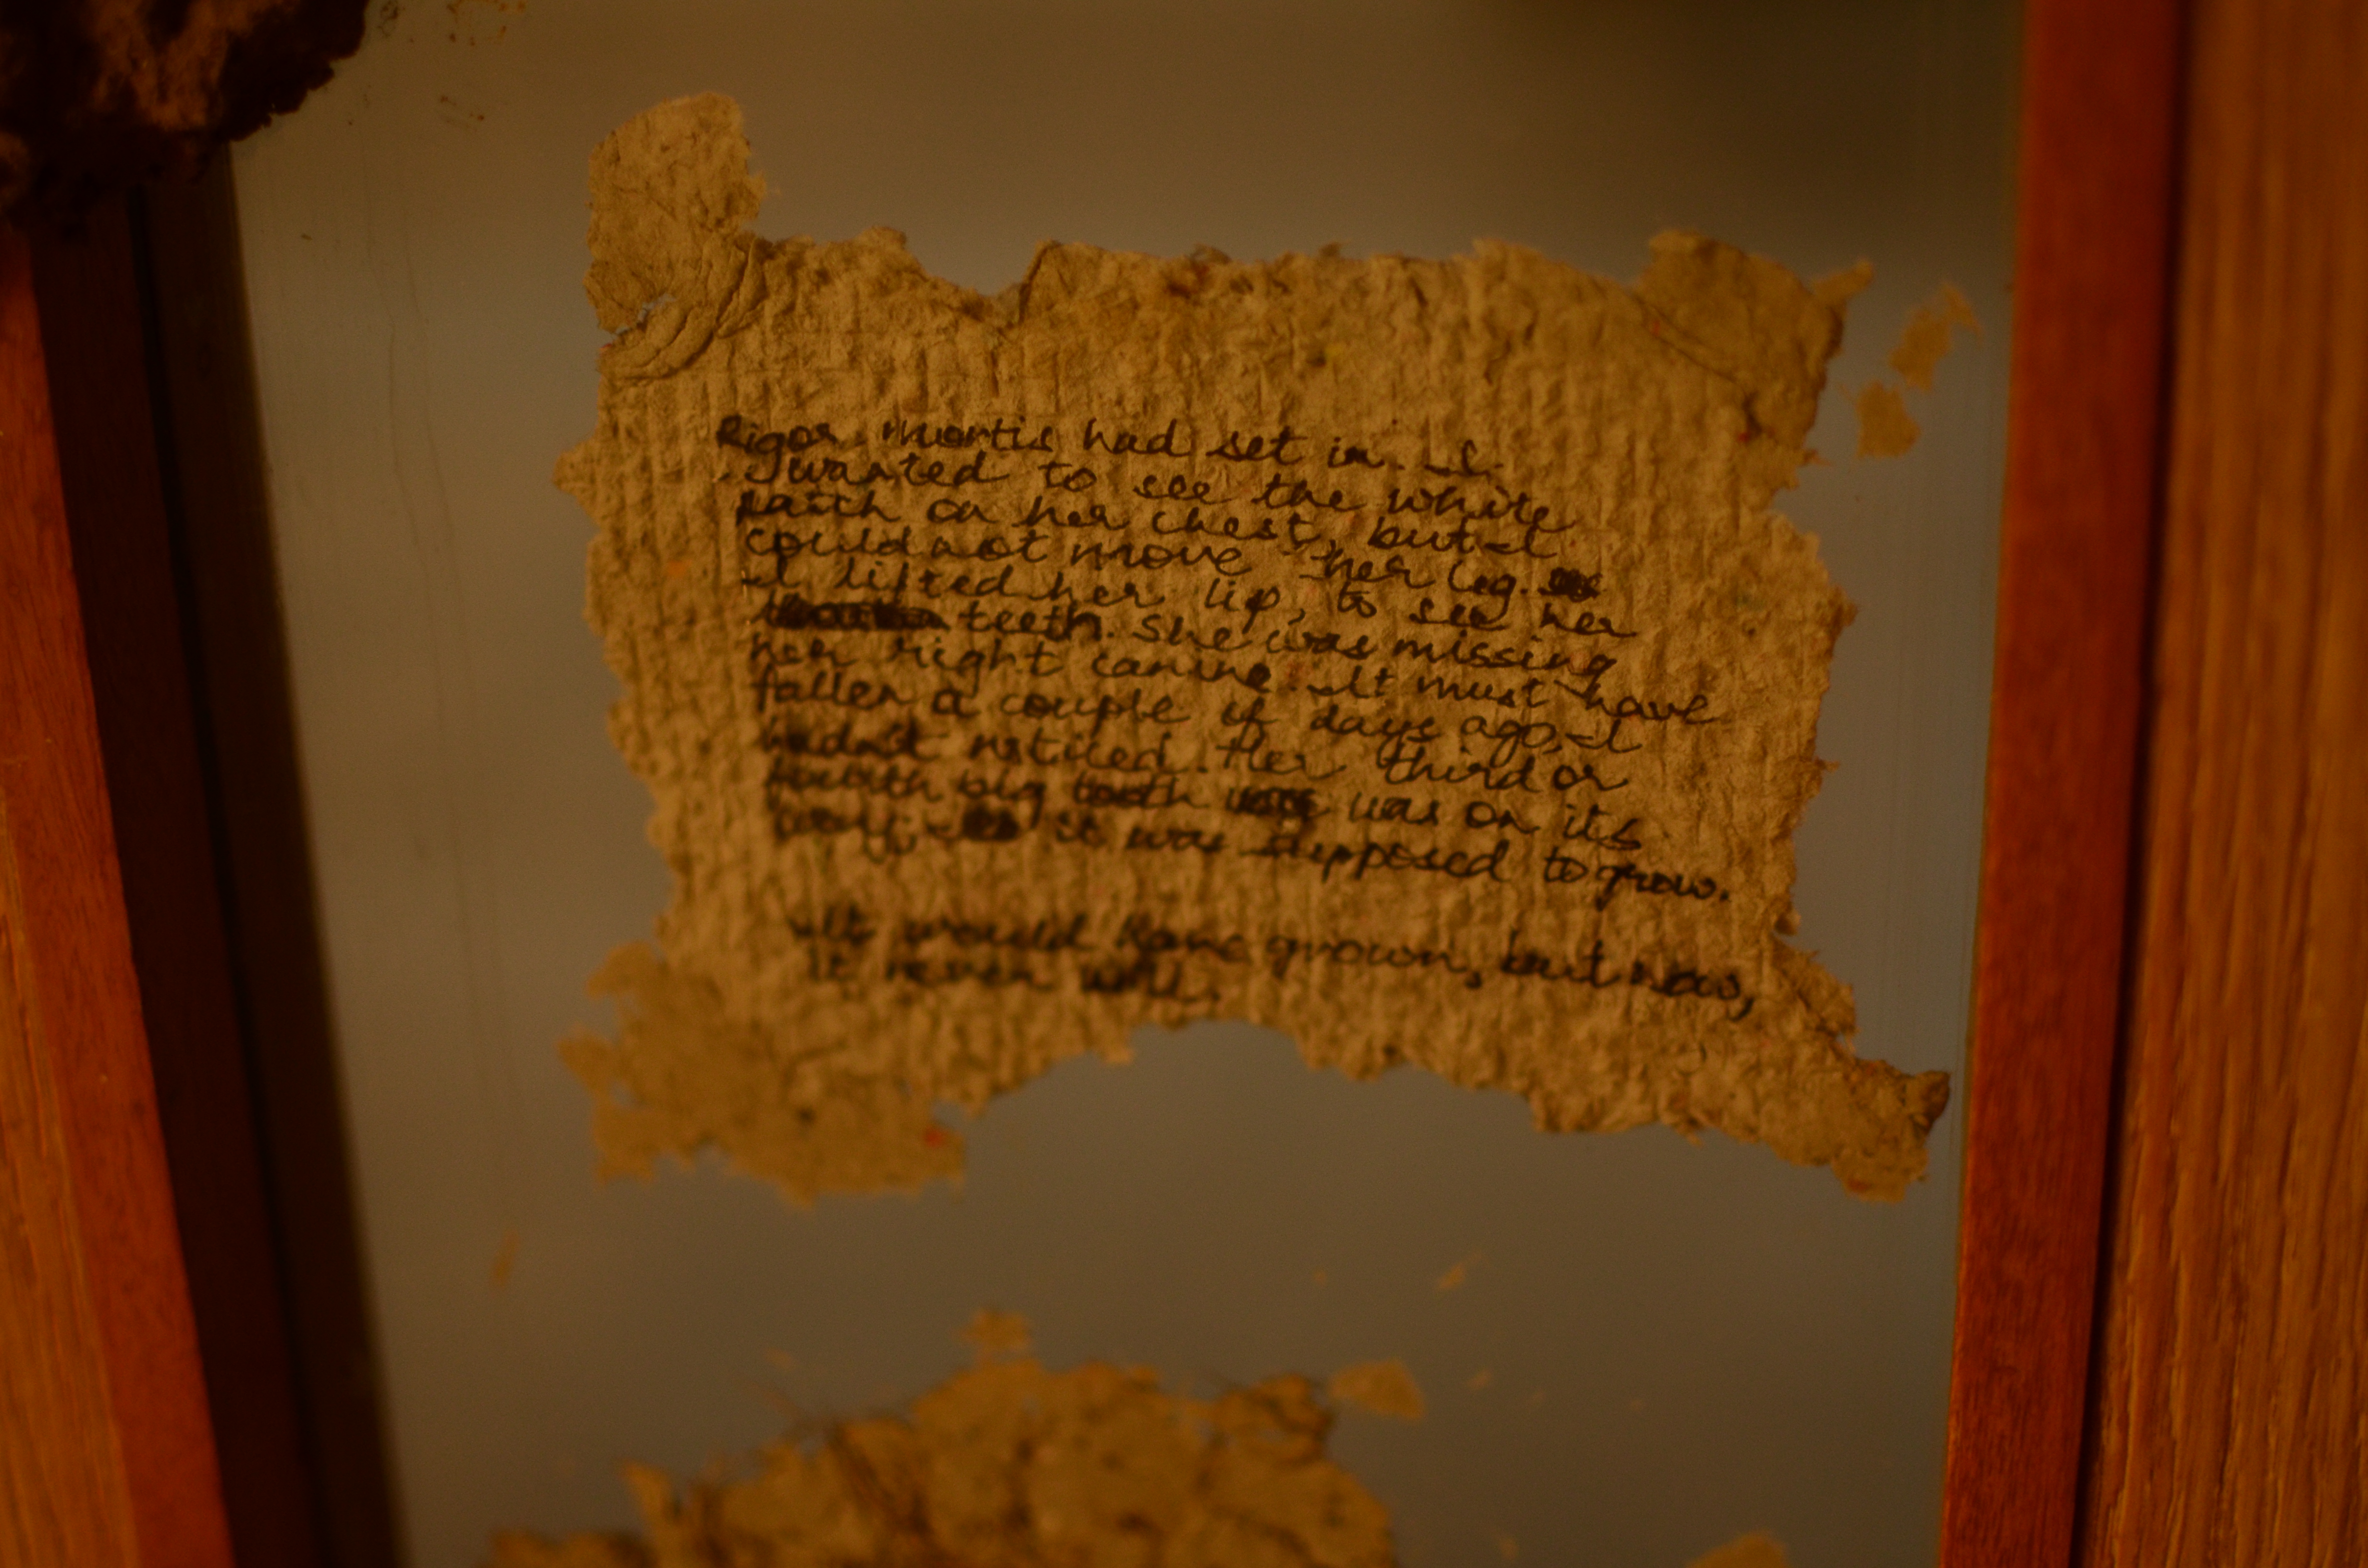 Rigor mortis had set in. I
I wanted to see the white
patch on her chest, but I
could not move her leg.
I lifted her lip, to see her
teeth. She was missing
her right canine. It must have
fallen a couple of days ago, I
hadn't noticed. Her third or
fourth big tooth was on its
way, it was supposed to grow.
It would have grown, but now,
it never will.